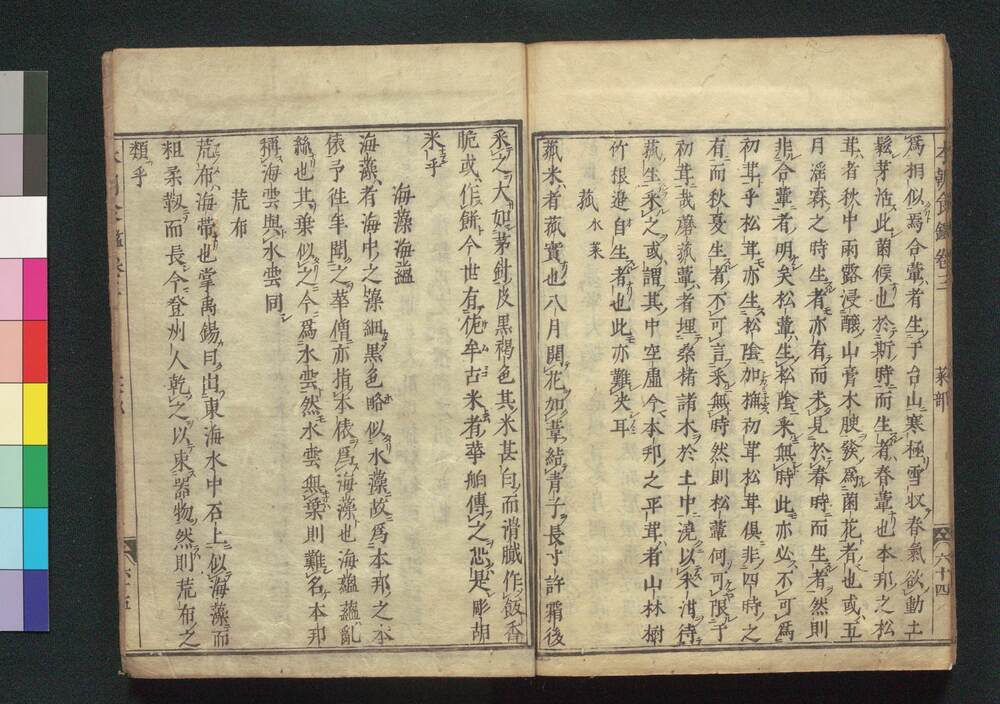 本朝食鑑卷三 菜部 六十四
爲相似爲合蕈者生于台山寒極雪收春氣欲動土
鬆芽活此菌候也於斯時而生者春蕈也本邦之松
茸者秋中雨露浸釀山膏木腴發爲菌花者也或五
月滛霖之時生者亦有而未見於春時而生者然則
非合蕈者明矣松蕈生松陰采無時此亦必不可爲
初茸乎松茸亦生松陰加擫初茸松茸俱非四時之
有而秋夏生者不可言采無時然則松蕈何可限于
初茸哉磨菰蕈者埋桑楮諸木於土中澆以米泔待
菰生采之或謂其中空虛今本邦之平茸者山林樹
竹根邉自生者也此亦難夬耳
菰 水菜
菰米者菰實也八月開花如葦結青子長寸許霜後
采之大如茅針皮黒褐色其米甚白而滑膩作飯香
脆或作餅今世有佗牟古米者華舶傳之恐是彫胡
米乎
海藻海蘊
海藻者海中之藻細黒色略似水藻故爲本邦之本
俵予徃年聞之華僧亦指本俵爲海藻也海蘊蘊亂
絲也其葉似之今爲水雲然水雲無葉則難名本邦
稱海雲與水雲同
荒布
荒布海帶也掌禹錫曰出東海水中石上似海藻而
粗柔靱而長今登州人乾之以束器物然則荒布之
類乎